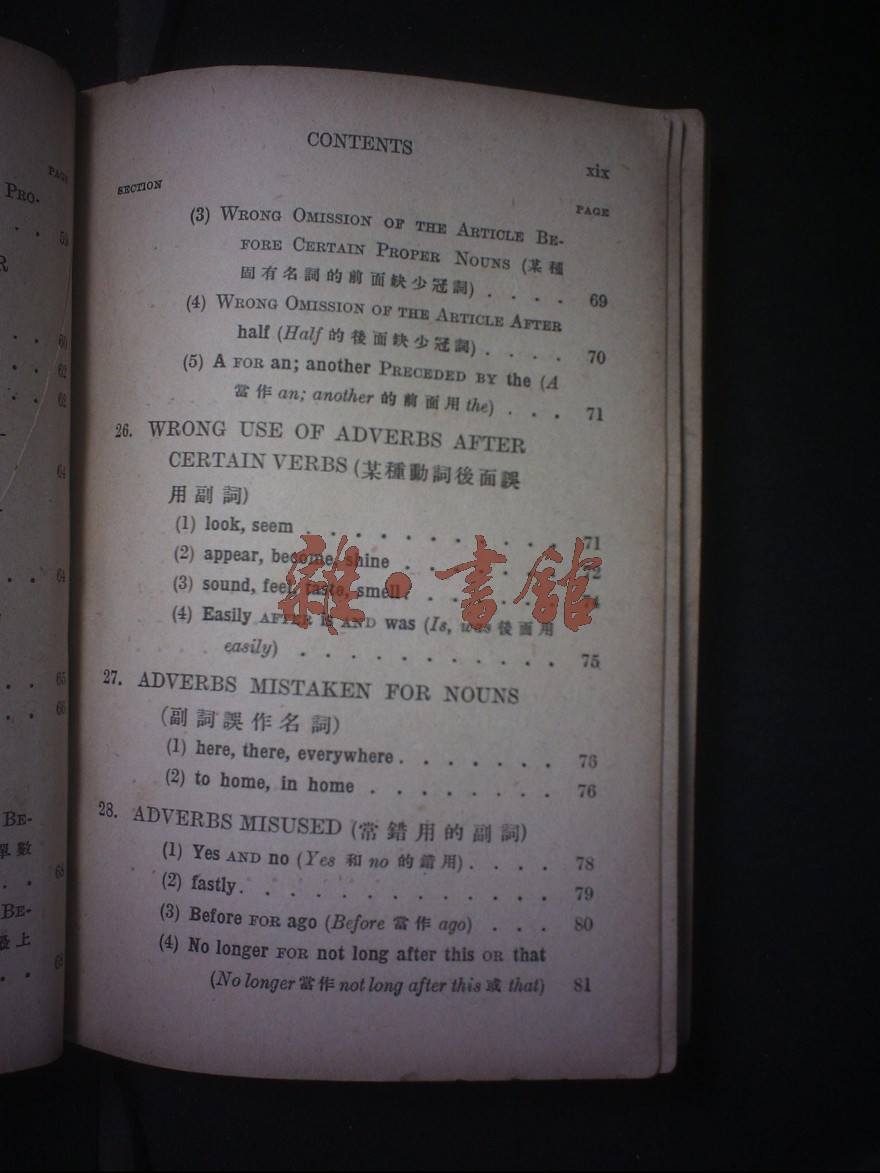 PAGE
PRO-
. . 59
R
. . 60
. . 62
. . 62
64
. . 64
. . 65
. . 66
BE-
單數
. . 68
BE-
最上
. . 68
CONTENTS
xix
SECTION
PAGE
(3) WRONG OMISSION OF THE ARTICLE BE-
FORE CERTAIN PROPER NOUNS (某種
固有名詞的前面缺少冠詞) . . . . 69
(4) WRONG OMISSION OF THE ARTICLE AFTER
half (Half 的後面缺少冠詞) . . . . 70
(5) A FOR an; another PRECEDED BY the (A
當作 an; another 的前面用 the) . . . 71
26. WRONG USE OF ADVERBS AFTER
CERTAIN VERBS (某種動詞後面誤
用副詞)
(1) look, seem . . . . . . . . . . 71
(2) appear, become, shine . . . . . . . 72
(3) sound, feel, taste, smell . . . . . . 74
(4) Easily AFTER is AND was (Is, was 後面用
easily) . . . . . . . . . . . 75
27. ADVERBS MISTAKEN FOR NOUNS
(副詞誤作名詞)
(1) here, there, everywhere . . . . . . . 76
(2) to home, in home . . . . . . . . 76
28. ADVERBS MISUSED (常錯用的副詞)
(1) Yes AND no (Yes 和 no 的錯用) . . . . 78
(2) fastly. . . . . . . . . . . . 79
(3) Before FOR ago (Before 當作 ago) . . . 80
(4) No longer FOR not long after this OR that
(No longer 當作 not long after this 或 that) 81
雜·書館